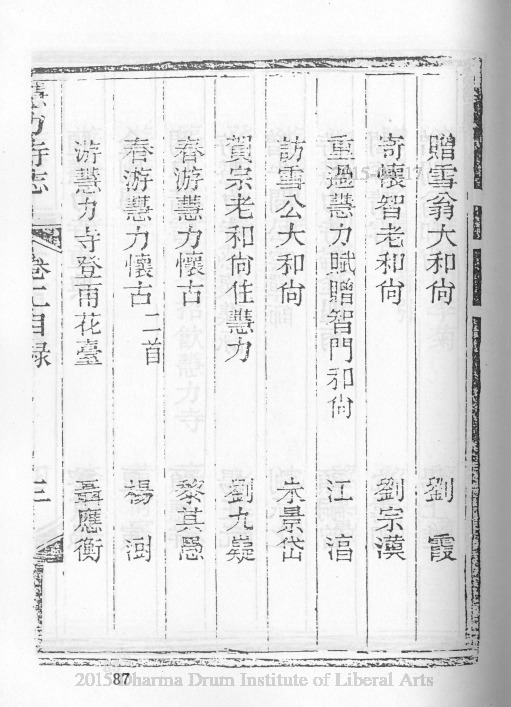 贈雪翁大和尙 劉霞
寄懷智老和尙 劉宗漢
重過慧力賦贈智門和尙 江
訪雪公大和尙 朱景岱
賀宗老和尙住慧力 劉九嶷
春游慧力懷古 黎其愚
春游慧力懷古二首 楊澍
游慧力寺登雨花臺 聶應衡
慧力寺志 卷二目録 三
87
2015 Dharma Drum Institute of Liberal Arts